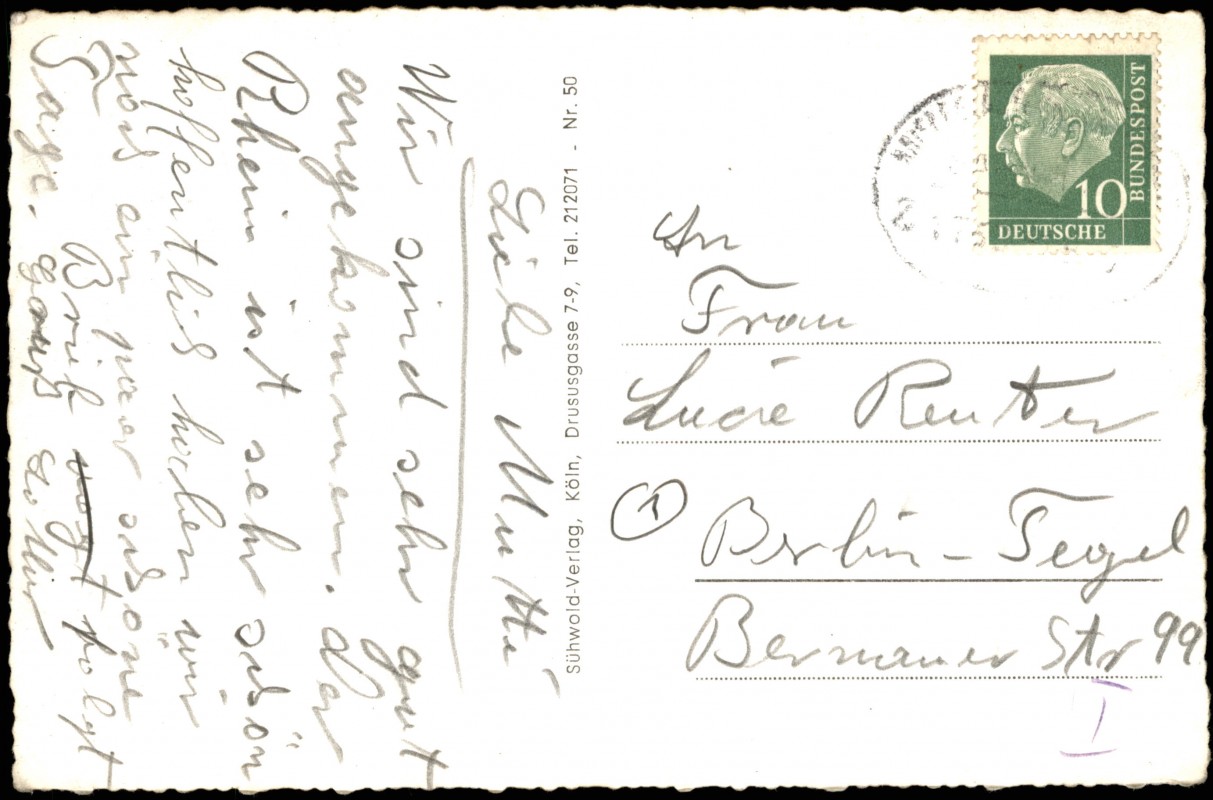 Liebe Mutti
Wir sind sehr gut
angekommen. der
Rhein ist sehr schön
hoffentlich haben wir
noch ein paar schöne
Tage. Brief folgt
Gruß
Sühwold-Verlag, Köln, Drususgasse 7-9, Tel. 212071 - Nr. 50
DEUTSCHE
BUNDESPOST
10
An
Frau
Lucie Reuter
1 Berlin - Tegel
Bernauer Str 99
I